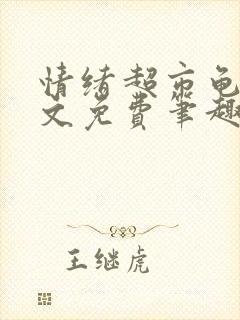 情绪超市龟
文免费笔趣
王继虎